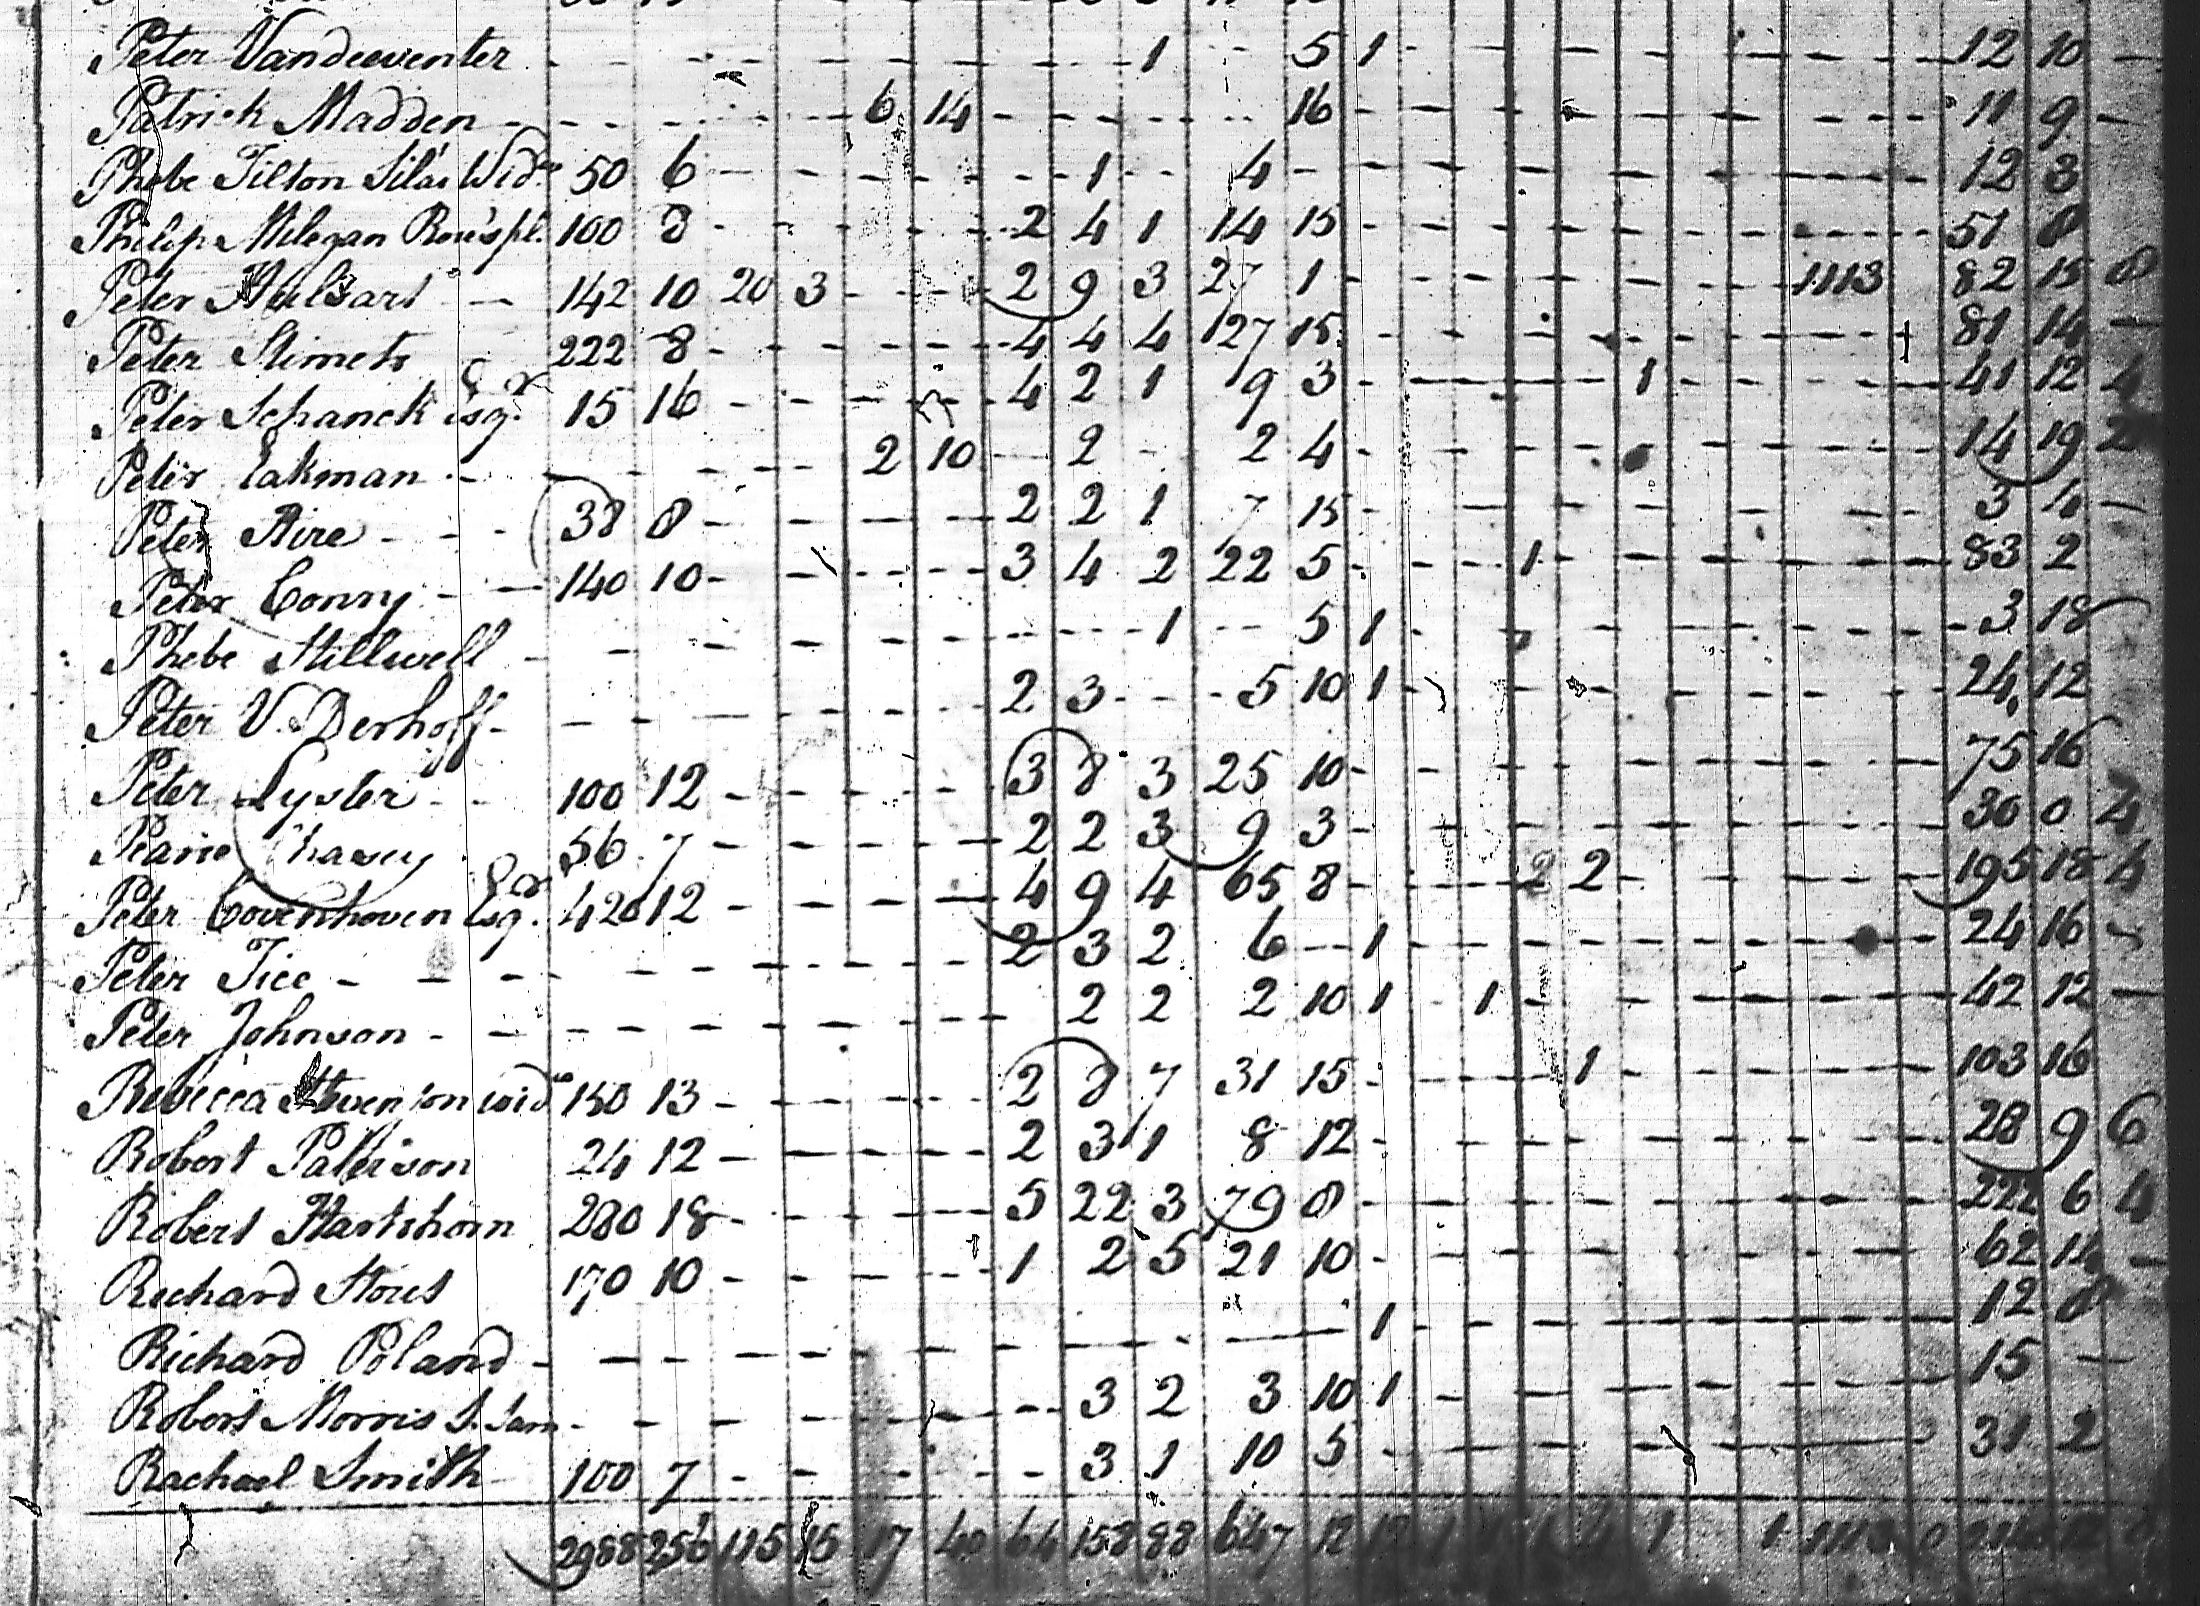 Peter Vandeventer 1 5 1 12 10
Patrick Madden 6 14 16 11 9
Phebe Tilton Silas Widw 50 6 1 4 12 3
Philip Milegan 100 8 2 4 1 14 15 51 0
Peter Hulsart 142 10 20 3 2 9 3 27 1 1113 82 15 8
Peter Stimets 222 8 4 4 4 27 15 81 14
Peter Schanck Esqr 15 16 4 2 1 9 3 1 41 12 4
Peter Eakman 2 10 2 2 4 14 19 2
Peter Aire 38 8 2 2 1 7 15 3 4
Peter Conny 140 10 3 4 2 22 5 1 83 2
Phebe Stillwell 1 5 1 3 18
Peter V. Derhoff 2 3 5 10 1 24 12
Peter Lyster 100 12 3 8 3 25 10 75 16
Chasey 56 7 2 2 3 9 3 30 0 4
Peter Covenhoven Esqr 420 12 4 9 4 65 8 2 2 195 18 4
Peter Tice 2 3 2 6 1 24 16
Peter Johnson 2 2 2 10 1 1 42 12
Rebecca Stevenson widw 150 13 2 8 7 31 15 1 103 16
Robert Patterson 24 12 2 3 1 8 12 28 9 6
Robert Hartshorn 280 18 5 22 3 79 0 222 6 4
Richard Stout 170 10 1 2 5 21 10 62 14
Richard Poland 1 12 0
Robert Morris 3 2 3 10 1 15
Rachael Smith 100 7 3 1 10 5 31 2
2988 256 115 15 17 40 64 158 88 647 12 12 4 1 1 1113 0